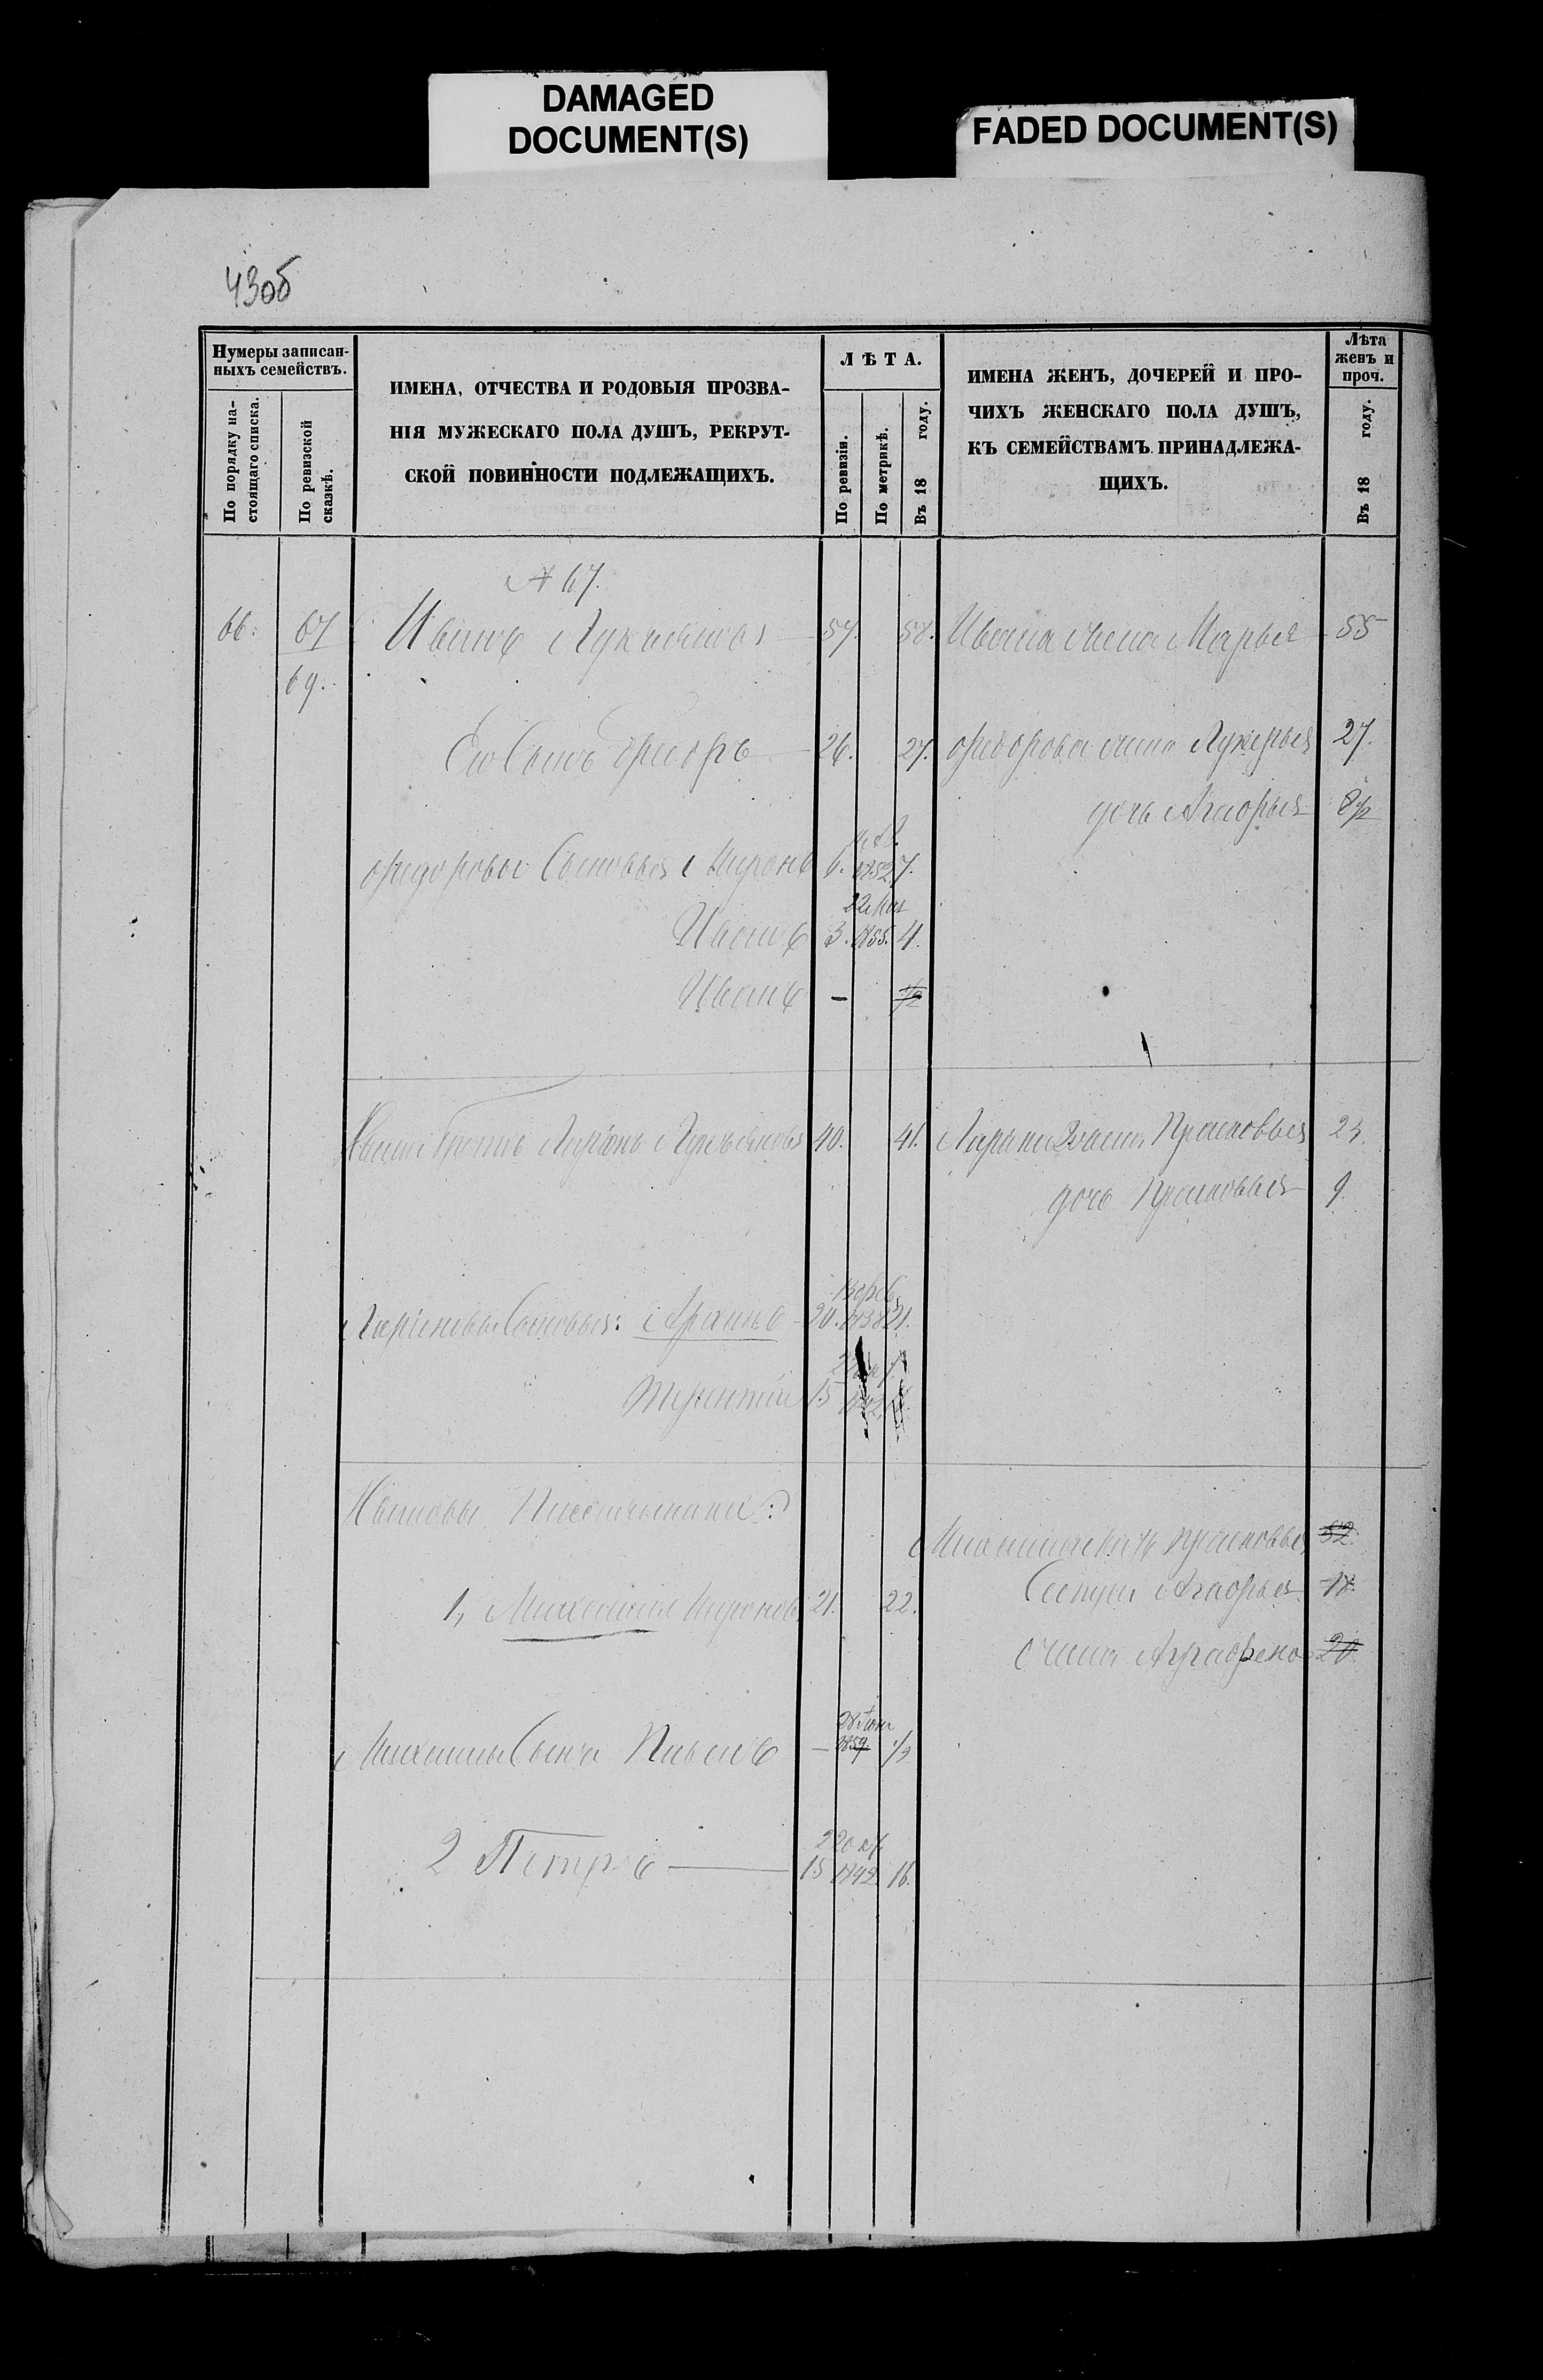 DAMAGED
DOCUMENT(S)
FADED DOCUMENT(S)
43об
Нумеры записан-
ныхъ семействъ.
По порядку на-
стоящаго списка.
По ревизской
сказкѣ.
ИМЕНА, ОТЧЕСТВА И РОДОВЫЯ ПРОЗВА-
НІЯ МУЖЕСКАГО ПОЛА ДУШЪ, РЕКРУТ-
СКОЙ ПОВИННОСТИ ПОДЛЕЖАЩИХЪ.
ЛѢТА.
По ревизіи.
По метрикѣ.
Въ 18 году.
ИМЕНА ЖЕНЪ, ДОЧЕРЕЙ И ПРО-
ЧИХЪ ЖЕНСКАГО ПОЛА ДУШЪ,
КЪ СЕМЕЙСТВАМЪ ПРИНАДЛЕЖА-
ЩИХЪ.
Лѣта
женъ и
проч.
Въ 18 году.
№ 67.
66. 67 Иванъ Лукьяновъ 57. 58. Ивана жена Марья 55
69.
Его Сынъ 26. 27. жена Лукерья 27.
дочь Агафья
Сыновья Миронъ 6. 1852 7.
22
Иванъ 3. 1855. 4.
Иванъ — 1/2
Ивана братъ Ларіонъ Лукьяновъ 40. 41. Ларіона жена Прасковья
дочь Прасковья 9
Ларіоновы Сыновья: 20. 1838 21.
Терентій 15 1842
Ивановы Племянники:
Михаила мать Прасковья 52.
1, Михаила Миронов 21. 22. Сестра Агафья 18.
жена Аграфена 20
Михаила Сынъ — 28 1859 1/2
22
2 Петръ 15 1842 16.